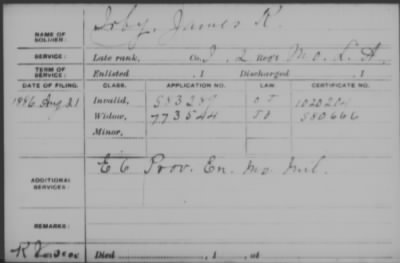 NAME OF SOLDIER: Irby, James K.
SERVICE: Late rank, Co. I, 2 Reg't Mo. L. A.
TERM OF SERVICE: Enlisted , 1 Discharged , 1
DATE OF FILING. CLASS. APPLICATION NO. LAW. CERTIFICATE NO.
1886 Aug 21 Invalid, 583289 1020204
Widow, 773544 580666
Minor,
ADDITIONAL SERVICES: E 6 Prov. En. Mo. Mil.
REMARKS:
Died , 1 , at